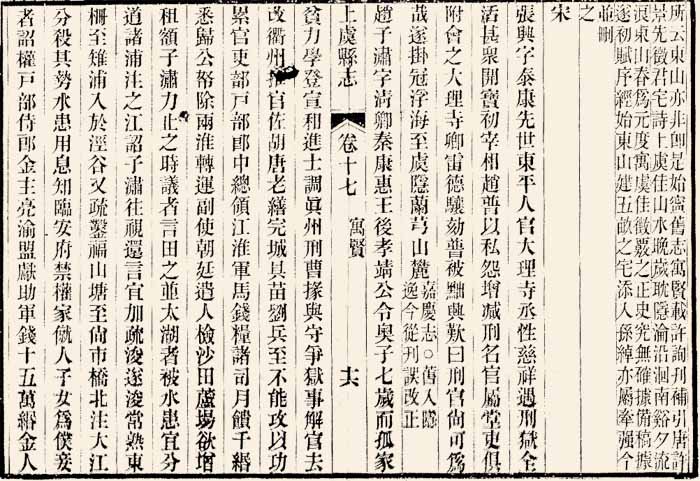 所云東山亦非卽是始甯舊志寓賢載許詢刋補引唐許
景先徵君宅詩上虞佳山水晚歲耽隱淪沿洄南谿夕流
浪東山春爲元度寓虞佳徵覈之正史究無確據備稿據
遂初賦序經始東山建五畝之宅添入孫綽亦屬牽强今
並刪
之
宋
張興字泰康先世東平人官大理寺丞性慈祥遇刑獄全
活甚衆開寶初宰相趙普以私怨增減刑名官屬堂吏俱
附會之大理寺卿雷德驤劾普被黜興歎曰刑官尙可爲
哉遂掛冠浮海至虞隱蘭芎山麓
嘉慶志○舊入隱
逸今從刊誤改正
趙子潚字清卿秦康惠王後孝靖公令奧子七歲而孤家
上虞縣志
卷十七
寓賢
貧力學登宣和進士調眞州刑曹掾與守爭獄事解官去
改衢州推官佐胡唐老繕完城具苗劉兵至不能攻以功
累官吏部戸部郞中總領江淮軍馬錢糧諸司月饋千緡
悉歸公帑除兩淮轉運副使朝廷遣人檢沙田蘆場欲增
租額子潚力止之時議者言田之並太湖者被水患宜分
道諸浦注之江詔子潚往視還言宜加疏浚遂浚常熟東
柵至雉浦入於涇谷又疏鑿福山塘至尙市橋北注大江
分殺其勢水患用息知臨安府禁權家僦人子女爲僕妾
者詔權戸部侍郞金主亮渝盟獻助軍錢十五萬緡金人